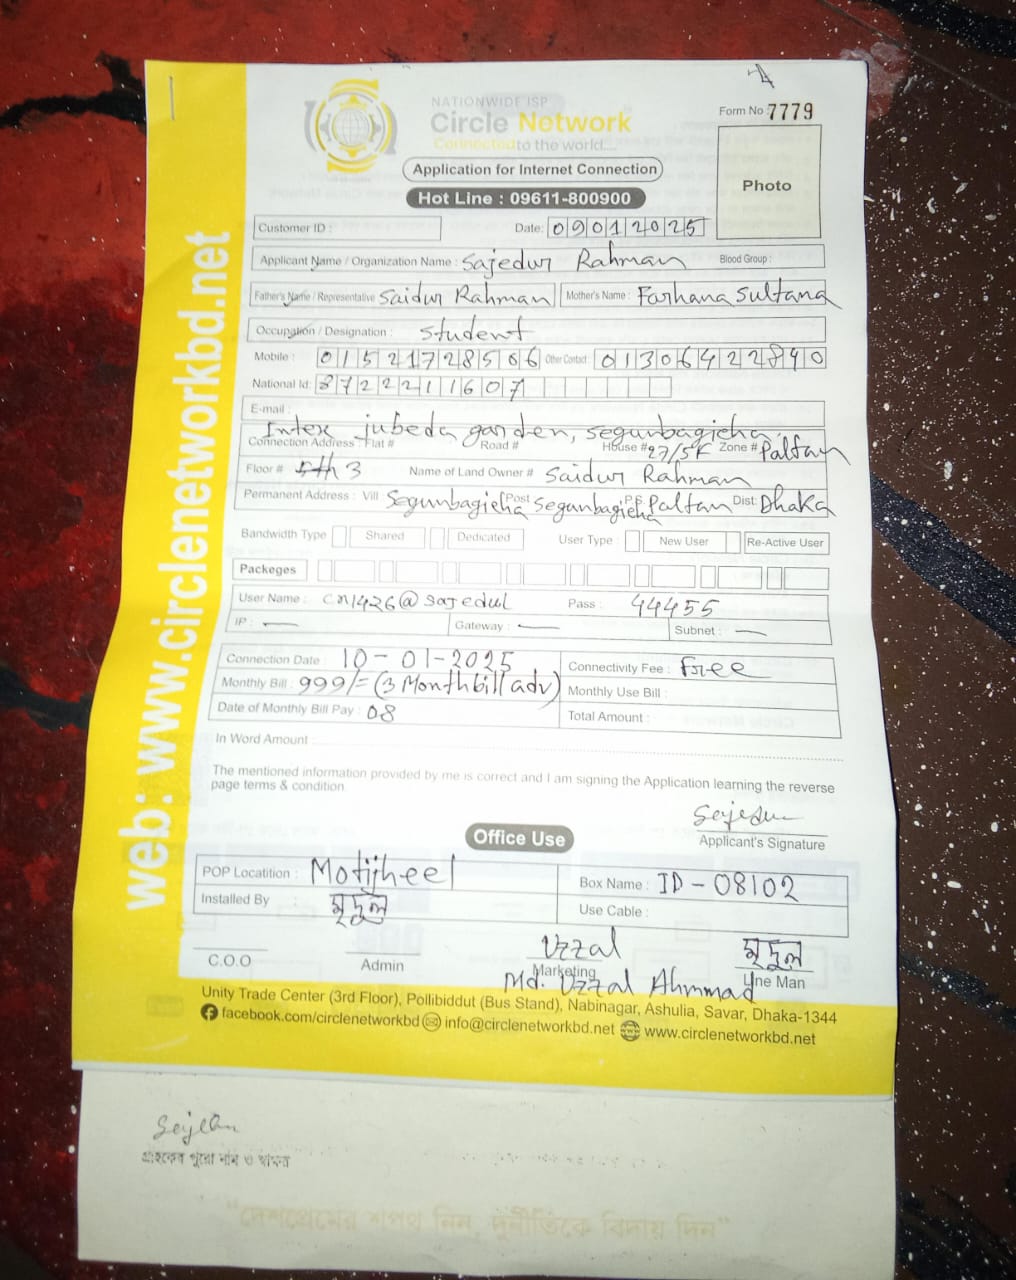 NATIONWIDE ISP
Circle Network
Connected to the world....
Form No : 7779
Application for Internet Connection
Photo
Hot Line : 09611-800900
Customer ID :
Date: 09012025
Applicant Name / Organization Name : Sajedur Rahman Blood Group :
Father's Name / Representative Saidur Rahman Mother's Name : Farhana Sultana
Occupation / Designation : Student
Mobile : 01521728506 Other Contact : 01306422840
National Id: 8722211607
E-mail :
Intex jubeda garden, segunbagicha,
Connection Address : Flat # Road # House # 27/5K Zone # Paltan
Floor # 3 Name of Land Owner # Saidur Rahman
Permanent Address : Vill Segunbagicha Post Segunbagicha P.S Paltan Dist: Dhaka
Bandwidth Type Shared Dedicated User Type : New User Re-Active User
Packeges
User Name : cn1426@sajedul Pass : 44455
IP : — Gateway : — Subnet : —
Connection Date : 10-01-2025 Connectivity Fee : Free
Monthly Bill : 999/= (3 Month bill adv) Monthly Use Bill :
Date of Monthly Bill Pay : 08 Total Amount :
In Word Amount :
The mentioned information provided by me is correct and I am signing the Application learning the reverse
page terms & condition.
Applicant's Signature
Office Use
POP Locatition : Motijheel Box Name : ID-08102
Installed By : মৃদুল Use Cable :
Uzzal মৃদুল
C.O.O Admin Marketing Line Man
Md. Uzzal Ahmmad
Unity Trade Center (3rd Floor), Pollibiddut (Bus Stand), Nabinagar, Ashulia, Savar, Dhaka-1344
facebook.com/circlenetworkbd info@circlenetworkbd.net www.circlenetworkbd.net
web: www.circlenetworkbd.net
গ্রাহকের পুরো নাম ও স্বাক্ষর
"দেশপ্রেমের শপথ নিন, দুর্নীতিকে বিদায় দিন"